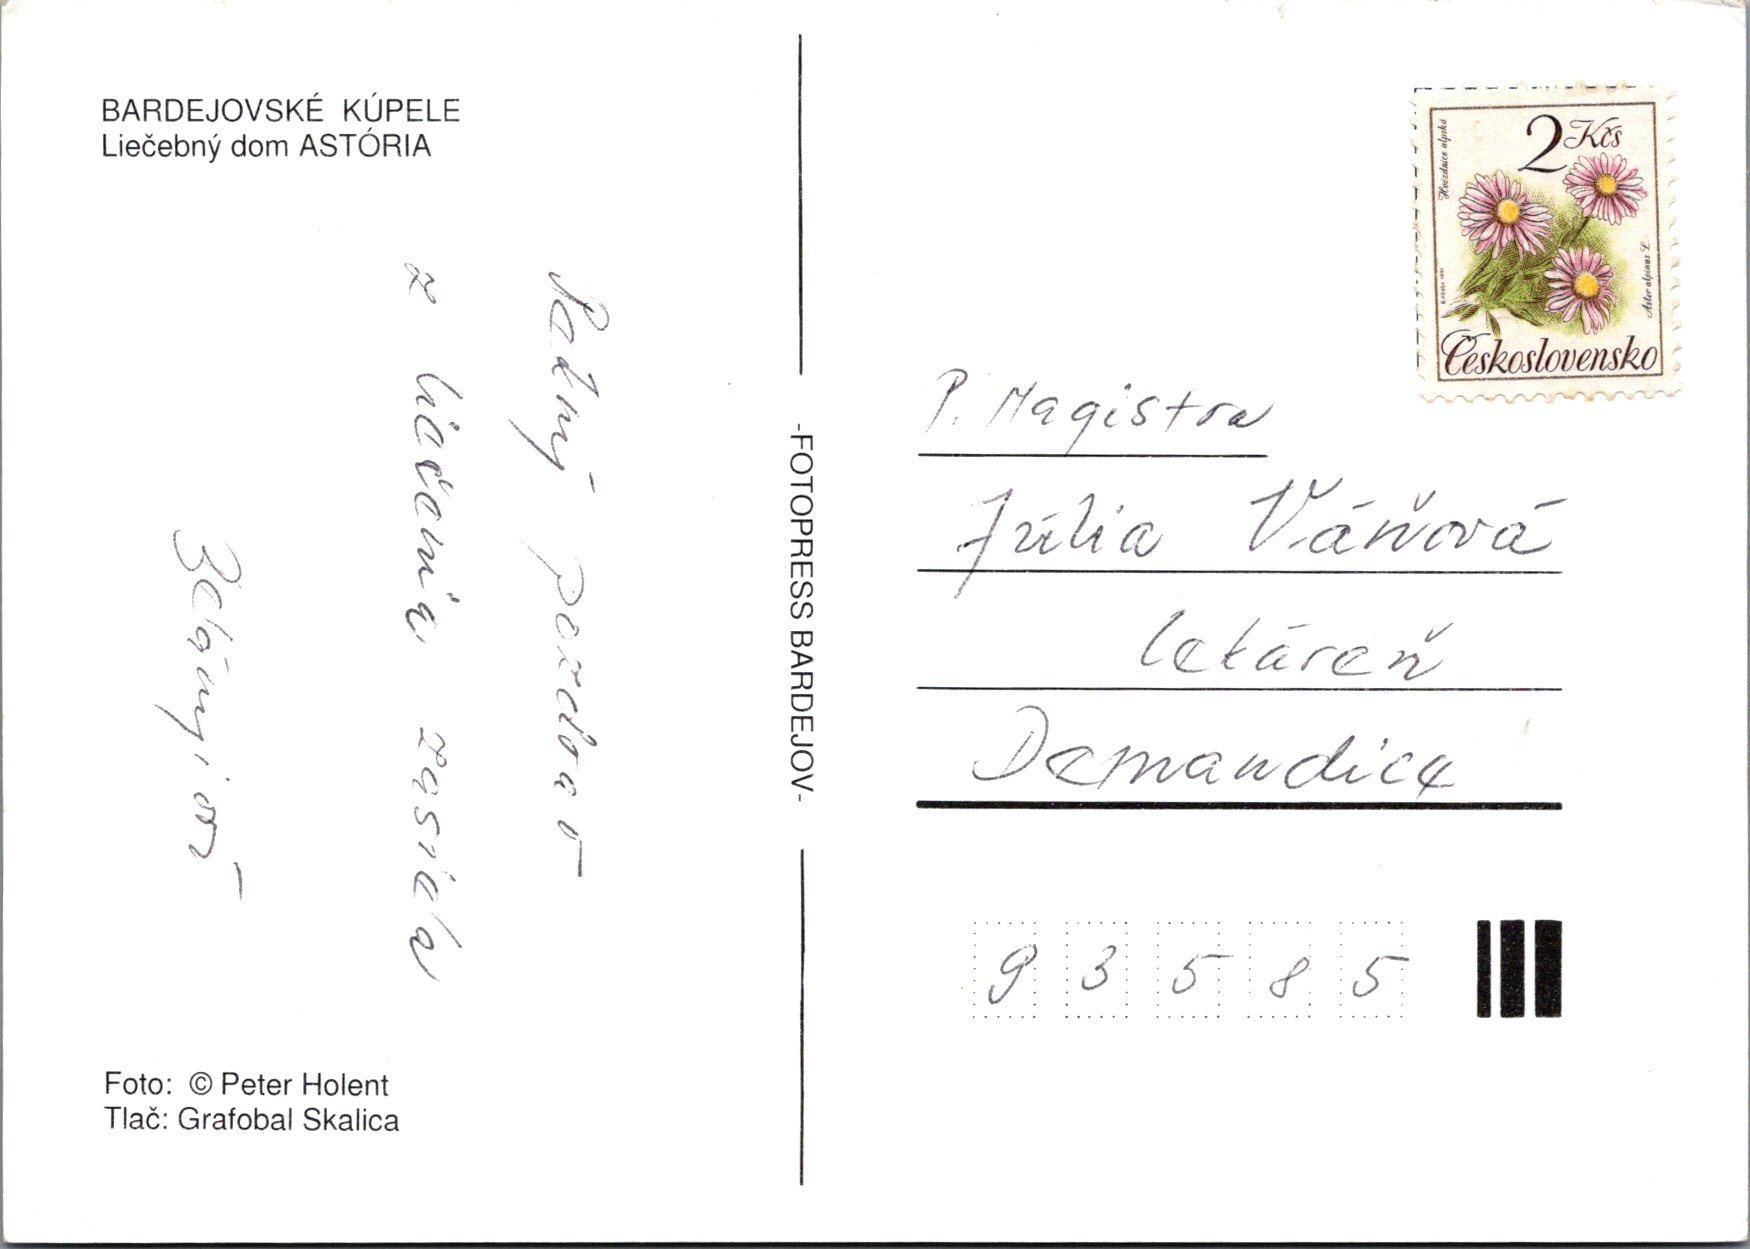 BARDEJOVSKÉ KÚPELE
Liečebný dom ASTÓRIA
Sadný pozdrav
z liačenia zasiela
Foto: © Peter Holent
Tlač: Grafobal Skalica
-FOTOPRESS BARDEJOV-
2 Kčs
Hvezdnice alpská
Aster alpinus L.
Československo
P. Magistra
Júlia Váňová
lekáreň
Demandice
93585